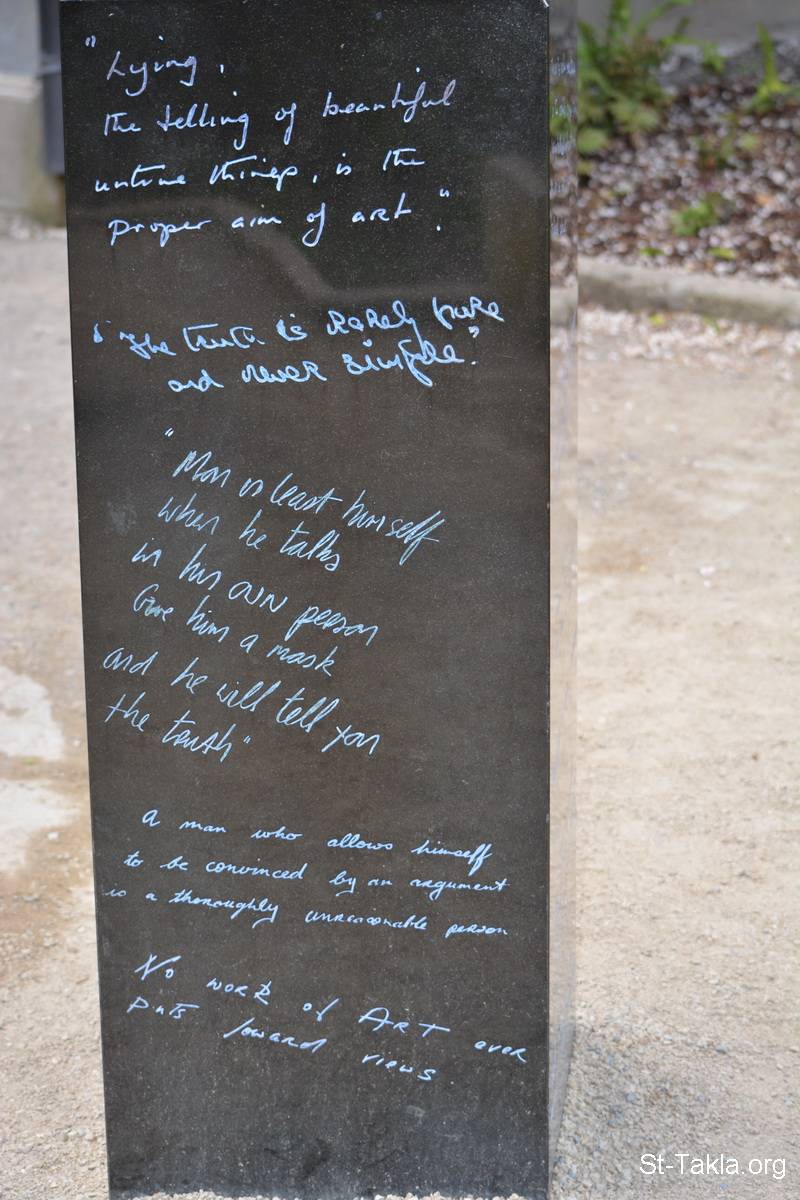 "Lying,
the telling of beautiful
untrue things, is the
proper aim of art."
"The truth is RaRely puRe
and neveR simple."
"Man is least himself
when he talks
in his own person
Give him a mask
and he will tell you
the truth"
A man who allows himself
to be convinced by an argument
is a thoroughly unreasonable person
No woRk of ART eveR
puts foward views
St-Takla.org